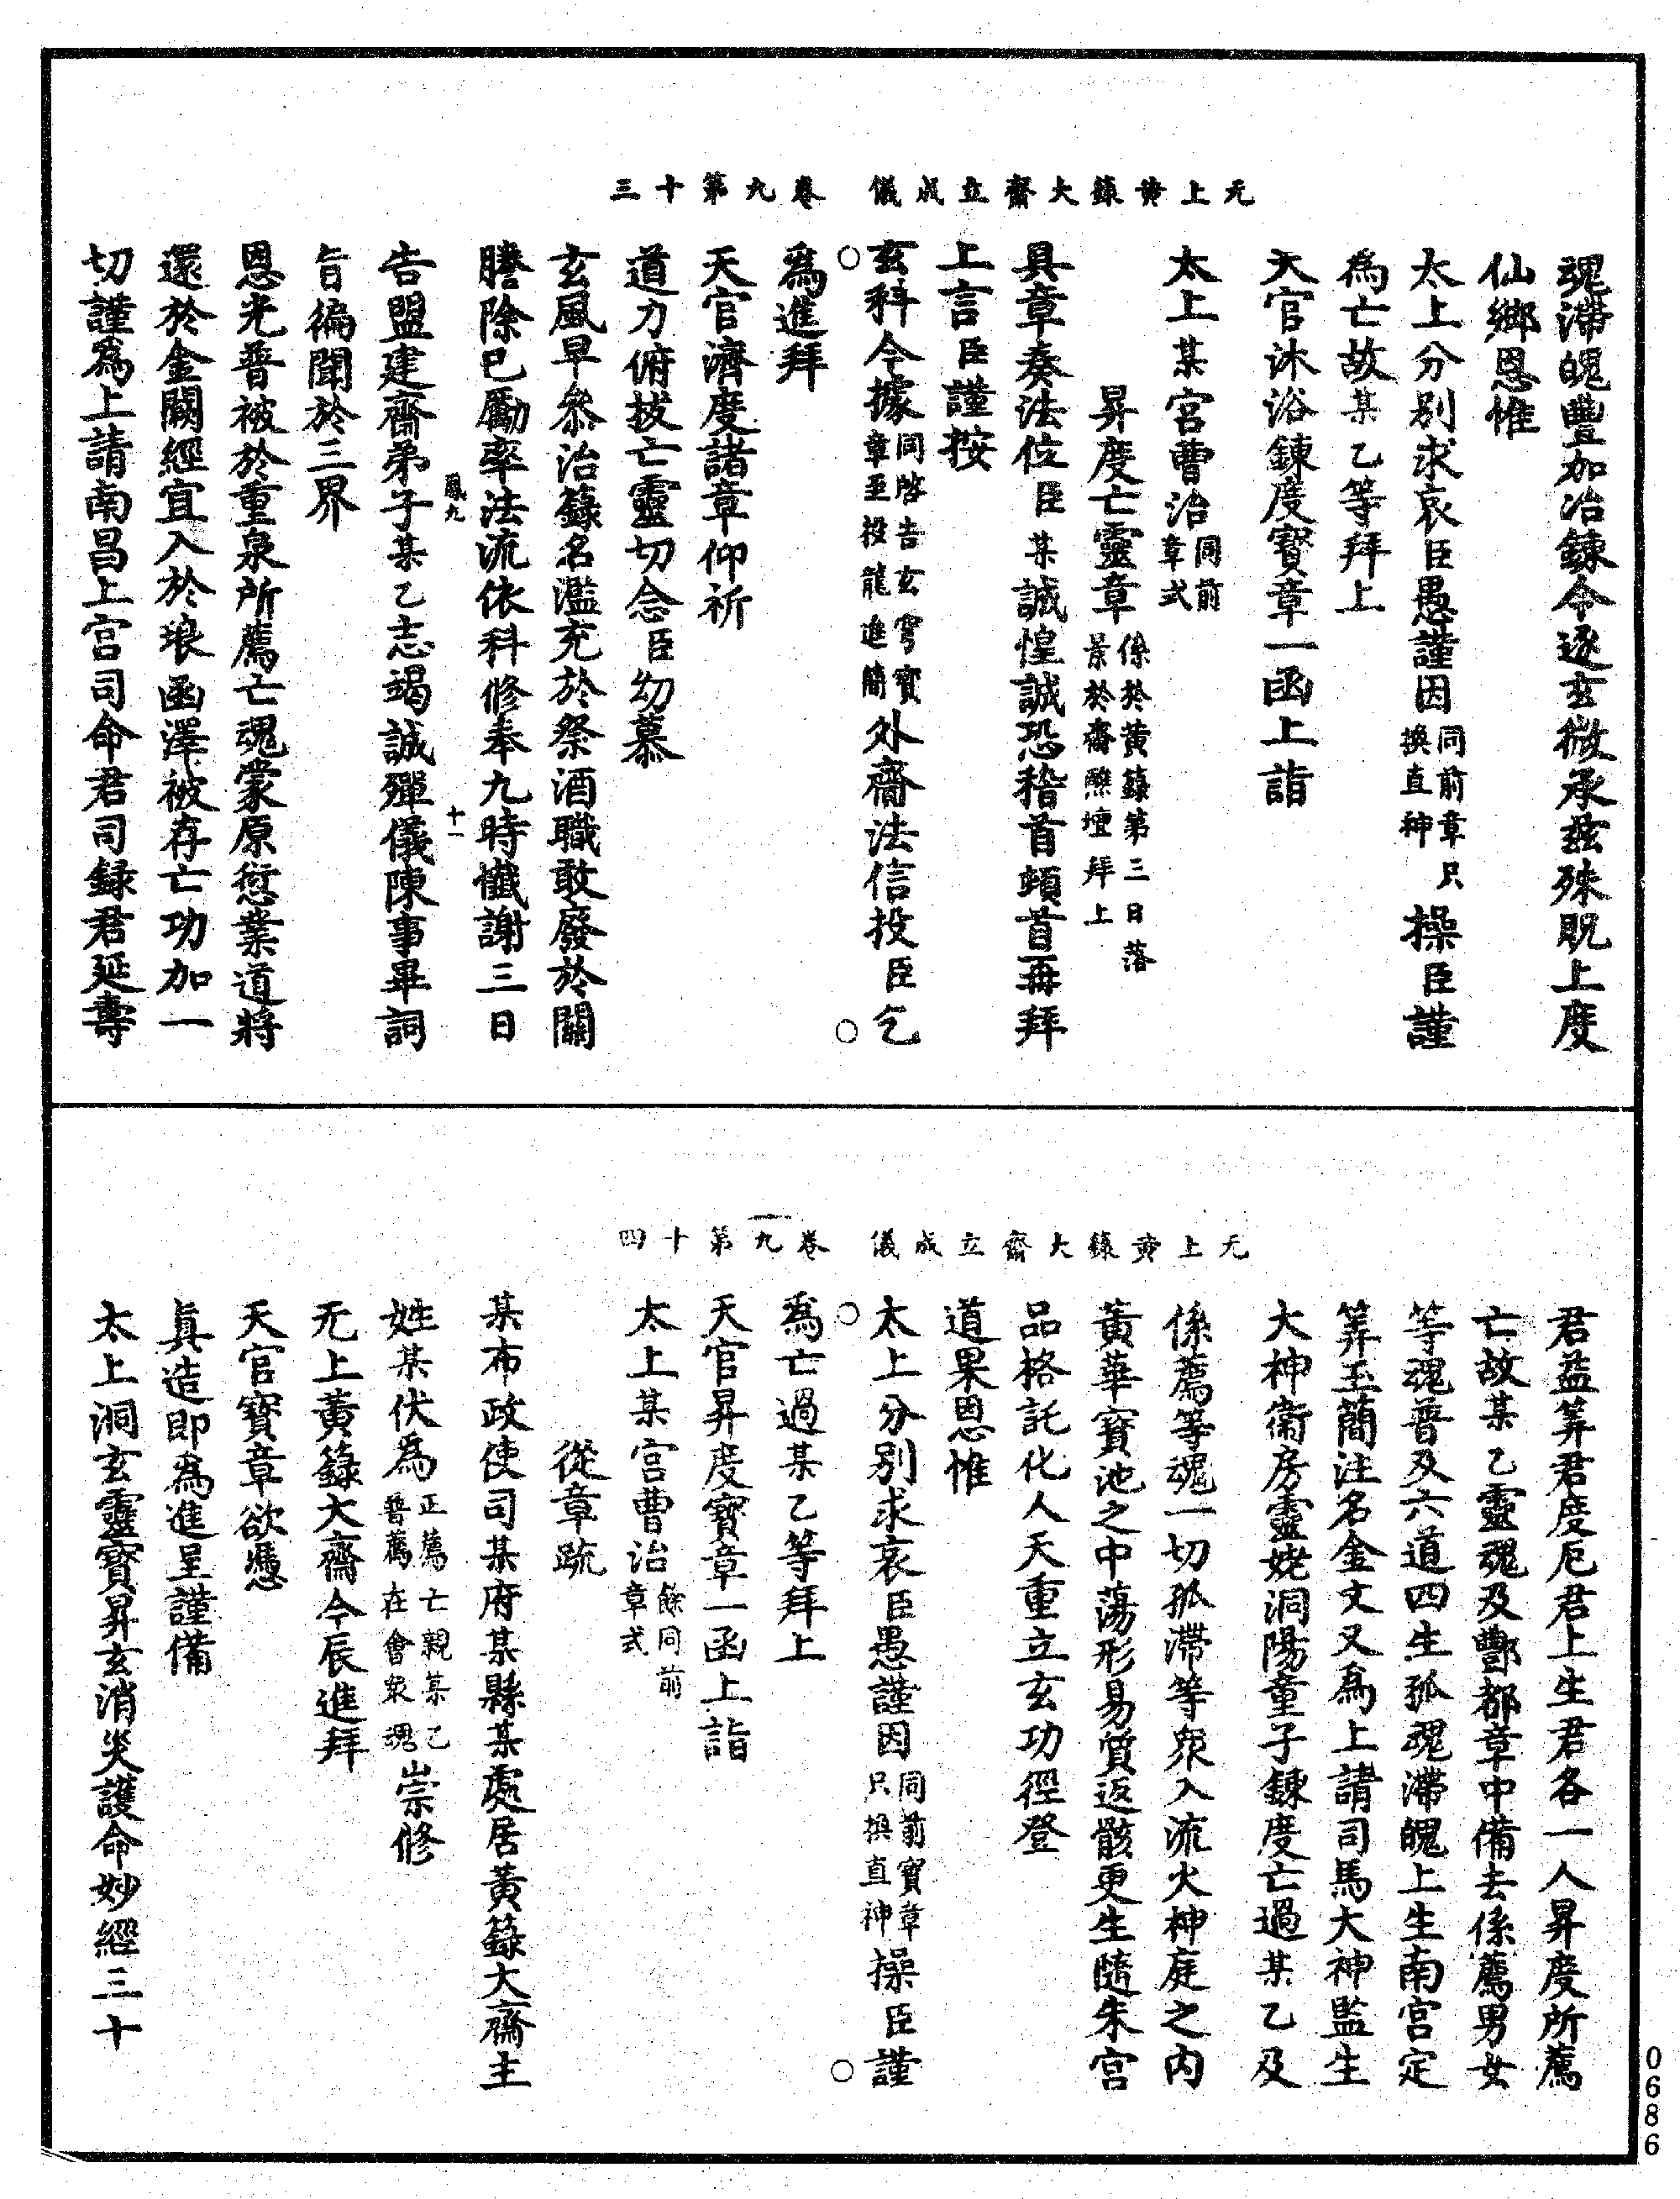 无上黄籙大齋立成儀　卷九第十三
魂滯魄豊加冶鍊令逐玄微承茲殊貺上度
仙鄉恩惟
太上分別求哀臣愚謹因同前章只換直神操臣謹
為亡故某乙等拜上
天官沐浴鍊度寶章一函上詣
太上某宮曹治同前章式
昇度亡靈章係於黄籙第三日落景於齋醮壇拜上
具章奏法位臣某誠惶誠恐稽首頓首再拜
上言臣謹按
玄科今據同啓告玄穹寶章至投龍進簡外齋法信投臣乞
為進拜
天官濟度諸章仰祈
道力俯拔亡靈切念臣幼慕
玄風早叅治籙名濫充於祭酒職敢廢於關
謄除已勵率法流依科修奉九時懺謝三日
鳳九　十一
告盟建齋弟子某乙志竭誠殫儀陳事畢詞
旨徧聞於三界
恩光普被於重泉所薦亡魂蒙原愆業道將
還於金闕經宜入於琅函澤被存亡功加一
切謹為上請南昌上宫司命君司録君延壽
无上黄籙大齋立成儀　卷九第十四
君益筭君度厄君上生君各一人昇度所薦
亡故某乙靈魂及酆都章中備去係薦男女
等魂普及六道四生孤魂滯魄上生南宫定
筭玉簡注名金文又為上請司馬大神監生
大神衞房靈姥洞陽童子鍊度亡過某乙及
係薦等魂一切孤滯等衆入流火神庭之内
黄華寶池之中蕩形易質返骸更生隨朱宫
品格託化人天重立玄功徑登
道果恩惟
太上分別求哀臣愚謹因同前寶章只換直神操臣謹
為亡過某乙等拜上
天官昇度寶章一函上詣
太上某宮曹治餘同前章式
從章䟽
某布政使司某府某縣某處居黄籙大齋主
姓某伏為正薦亡親某乙普薦在會衆魂崇修
无上黄籙大齋今辰進拜
天官寶章欲憑
真造即為進呈謹備
太上洞玄靈寶昇玄消災護命妙經三十
0686